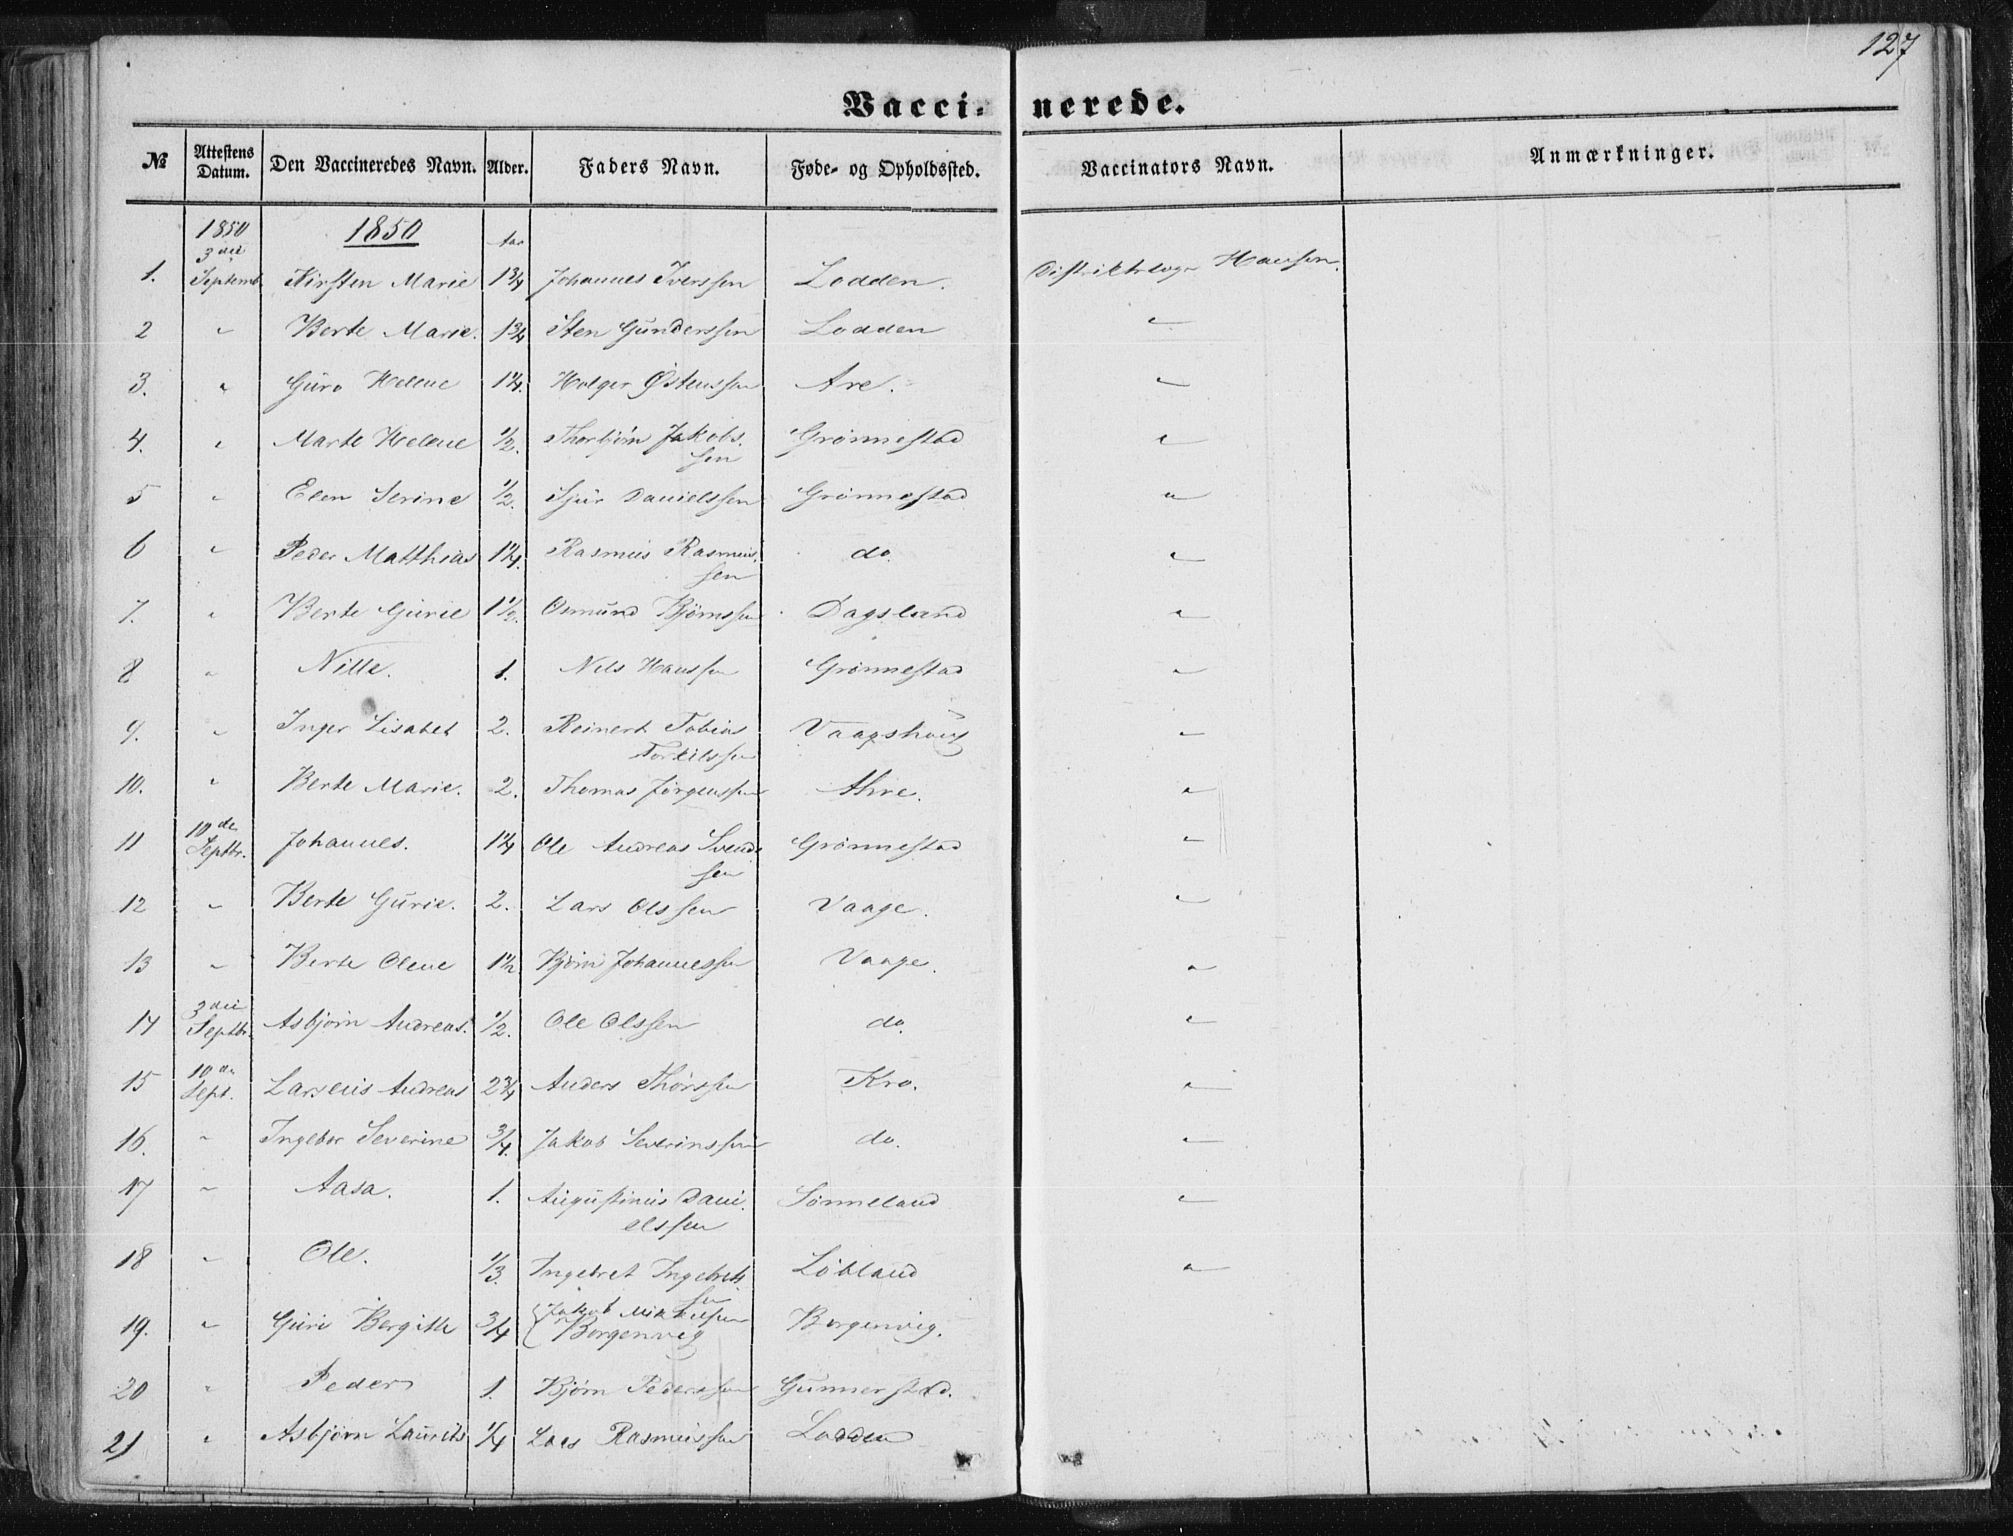 127
Vacci- nerede.
№ Attestens Datum. Den Vaccineredes Navn. Alder. Faders Navn. Føde- og Opholdssted. Vaccinators Navn. Anmærkninger.
1850 1850 Aar
3die
1. Septemb. Kirsten Marie 1 3/4 Johannes Iverssen Lodden. Distriktslæge Hansen.
2 " Berte Marie. 1 3/4 Sten Gunderssen Lodden "
3. " Guro Helene 1 1/4. Holger Østenssen Are. "
4. " Marte Helene 1/2. Thorbjørn Jakobs- Grønnestad "
sen
5 " Elen Serine 1/2. Sjur Danielssen Grønnestad "
6 " Peder Matthias 1 1/4. Rasmus Rasmus- do. "
sen
7. " Berte Gurie 1 1/2. Osmund Bjørnssen Dagsland "
8 " Nille. 1. Nils Hanssen Grønnestad "
9. " Inger Lisabet 2. Reinert Tobias Vaagshaug "
Torkilssen
10. " Berte Marie. 2. Thomas Jørgenssen "
10de
11 Septbr. Johannes. 1 1/4 Ole Andreas Svend- Grønnestad "
sen
12 " Berte Gurie. 2. Lars Olssen Vaage. "
13 " Berte Olene 1 1/2 Bjørn Johannessen Vaage. "
3die
14 Septbr. Asbjørn Andreas. 1/2. Ole Olssen do. "
10de
15 Sept. Larseus Andreas 2 3/4 Anders Thorssen Kro. "
16. " Ingebor Severine 3/4. Jakob Severinssen do. "
17 " Aasa. 1. Augustinus Dani- Sønneland "
elssen
18 " Ole. 1/3. Ingebret Ingebrets- Løbland "
sen
Jakob Mikkelsen
19. " Guri Bergitte 3/4 Borgenvig Borgenvig.
20 " Peder 1. Bjørn Pederssen Gunnerstad.
21 " Asbjørn Laurits 1/4 Lars Rasmussen Lodden